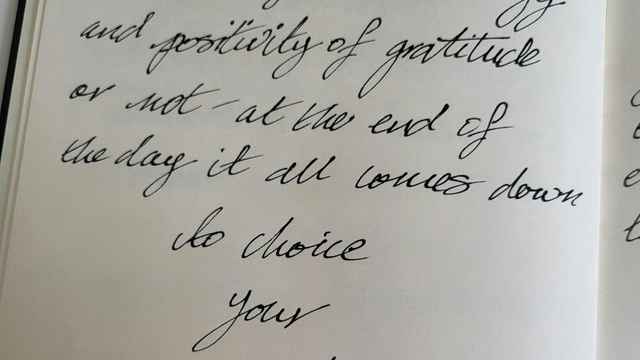 and positivity of gratitude
or not - at the end of
the day it all comes down
to choice
your